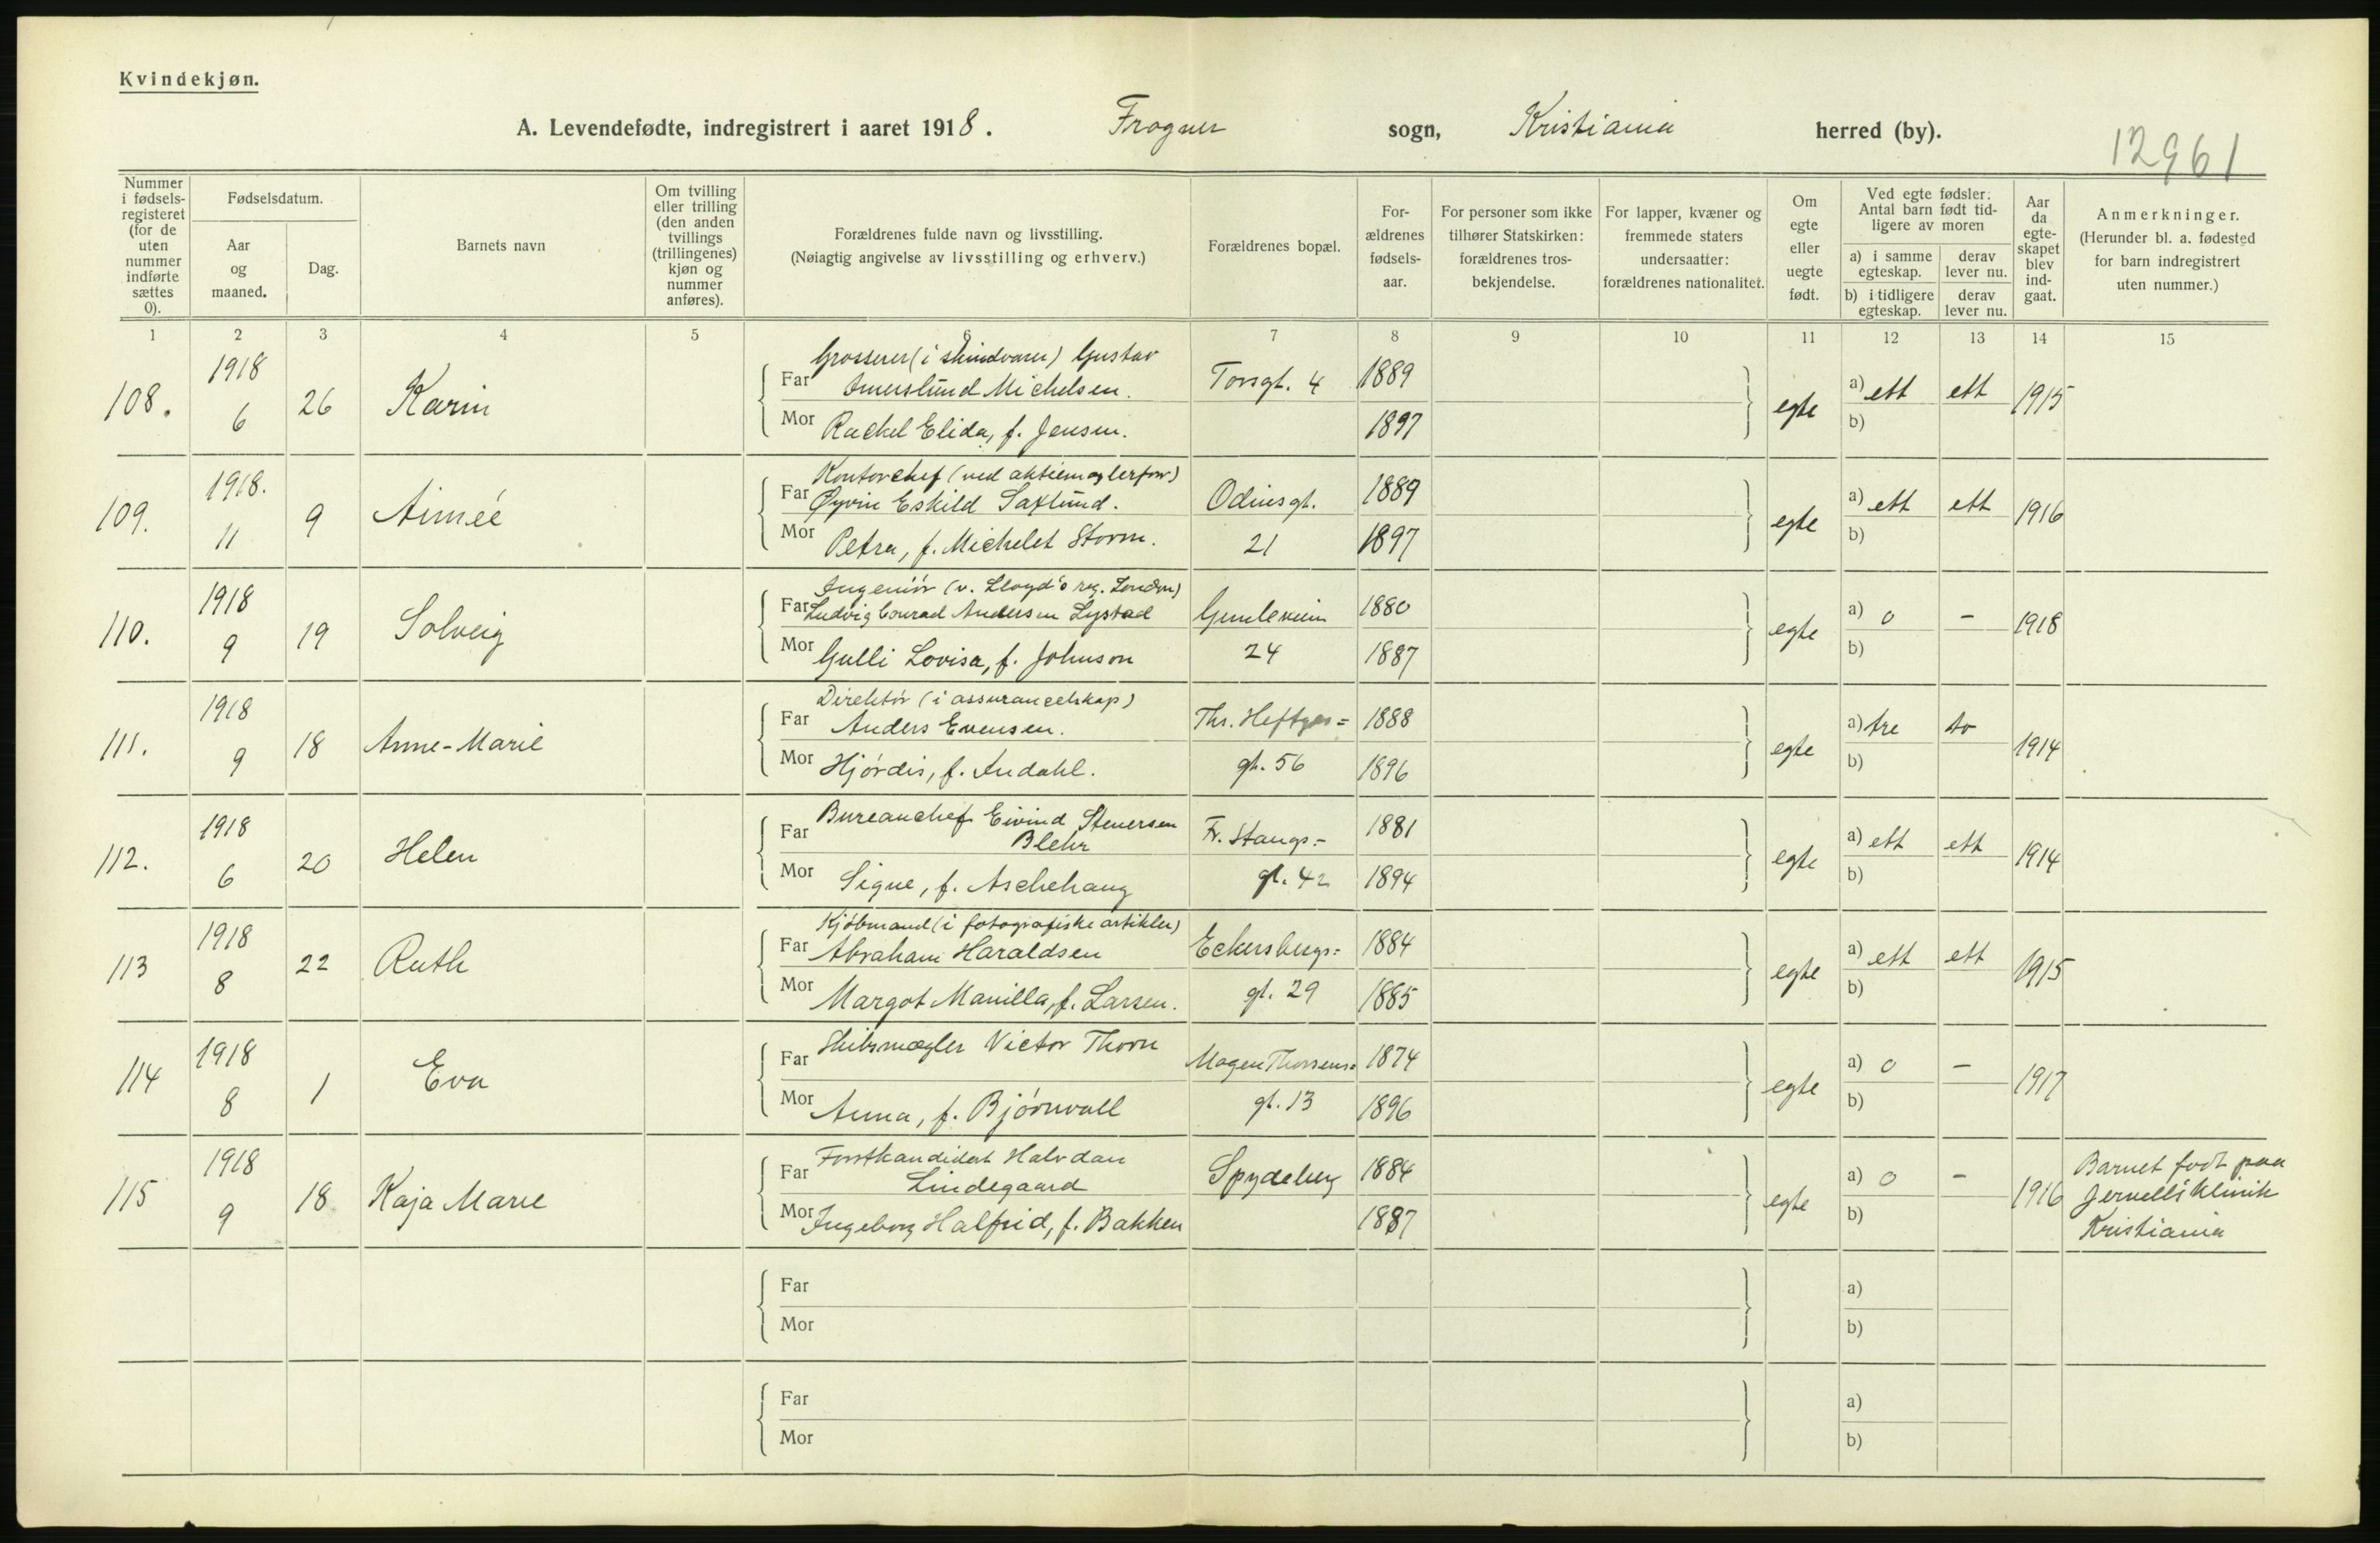 Kvindekjøn.
A. Levendefødte, indregistrert i aaret 1918. Frogner sogn, Kristiania herred (by).
12961
Nummer i fødsels-registeret (for de uten nummer indførte sættes 0).
Fødselsdatum.
Aar og maaned.
Dag.
Barnets navn
Om tvilling eller trilling (den anden tvillings (trillingenes) kjøn og nummer anføres).
Forældrenes fulde navn og livsstilling.
(Nøiagtig angivelse av livsstilling og erhverv.)
Forældrenes bopæl.
For-ældrenes fødsels-aar.
For personer som ikke tilhører Statskirken: forældrenes tros-bekjendelse.
For lapper, kvæner og fremmede staters undersaatter: forældrenes nationalitet.
Om egte eller uegte født.
Ved egte fødsler: Antal barn født tid-ligere av moren
a) i samme egteskap.
derav lever nu.
b) i tidligere egteskap.
derav lever nu.
Aar da egte-skapet blev ind-gaat.
Anmerkninger.
(Herunder bl. a. fødested for barn indregistrert uten nummer.)
1 2 3 4 5 6 7 8 9 10 11 12 13 14 15
Grosserer (i skindvarer) Gustav
108. 1918 6 26 Karin Far Amerslund Michelsen. Torsgt. 4 1889 egte a) ett ett 1915
Mor Rachel Elida, f. Jensen. 1897 b)
Kontorchef (ved aktiemæglerforr)
109. 1918. 11 9 Aimeé Far Øyvin Eskild Saxlund. Odinsgt. 1889 egte a) ett ett 1916
Mor Petra, f. Michelet Storm. 21 1897 b)
Ingeniør (v. Lloyd's reg. London)
110. 1918 9 19 Solveig Far Ludvig Conrad Andersen Lystad Gimleveien 1880 egte a) 0 - 1918
Mor Gulli Lovisa, f. Johnson 24 1887 b)
Direktør (i assuranceselskap)
111. 1918 9 18 Anne-Marie Far Anders Evensen. Thr. Heftyes= 1888 egte a) tre to 1914
Mor Hjørdis, f. Andahl. gt. 56 1896 b)
Bureauchef Eivind Stenersen
112. 1918 6 20 Helen Far Blehr Fr. Stangs- 1881 egte a) ett ett 1914
Mor Signe, f. Aschehaug gt. 42 1894 b)
Kjøbmand (i fotografiske artikler)
113 1918 8 22 Ruth Far Abraham Haraldsen Eckersbergs= 1884 egte a) ett ett 1915
Mor Margot Manilla, f. Larsen. gt. 29 1885 b)
114 1918 8 1 Eva Far Skibsmægler Victor Thorn Magen Thorsens= 1874 egte a) 0 - 1917
Mor Anna, f. Bjørnvall gt. 13 1896 b)
Forstkandidat Halvdan
115 1918 9 18 Kaja Marie Far Lindegaard Spydeberg 1884 egte a) 0 - 1916 Barnet født paa Jervells klinik Kristiania
Mor Ingeborg Halfrid, f. Bakken 1887 b)
Far a)
Mor b)
Far a)
Mor b)